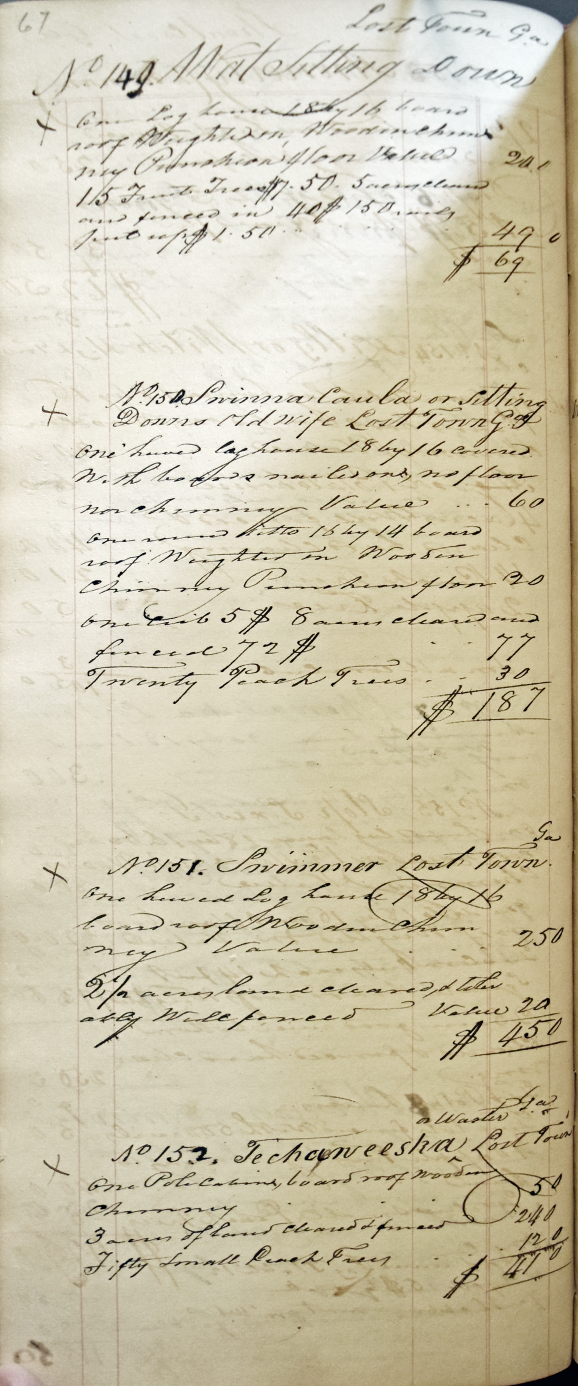 67
Lost Town Ga
No 149. Wat Sitting Down
One Log house 18 by 16 board
roof Weighted on, Wooden chim
ney Puncheon floor Value 20 0
15 Fruit Trees $7.50. 5 acres cleared
and fenced in 40$ 150 rails
put up $1.50 49 0
$ 69
No 150 Swinna Caula or Sitting
Downs Old wife Lost Town Ga
One hewed log house 18 by 16 covered
With boards nailed on, no floor
nor chimney Value 60
One round ditto 16 by 14 board
roof Weighted on Wooden
Chimney Puncheon floor 20
One Crib 5$ 8 acres cleared and
fenced 72$ 77
Twenty Peach Trees 30
$ 187
Ga
No 151. Swimmer Lost Town.
One hewed Log house 18 by 16
board roof Wooden Chim
ney Value 250
2 1/2 acres land cleared, & toler
ably Well fenced Value 20
$ 450
Ga
No 152. Techaweeska Lost Town
One Pole Cabin, board roof Wooden
Chimney 50
3 acres of land cleared & fenced 240
Fifty Small Peach Trees 120
$ 410